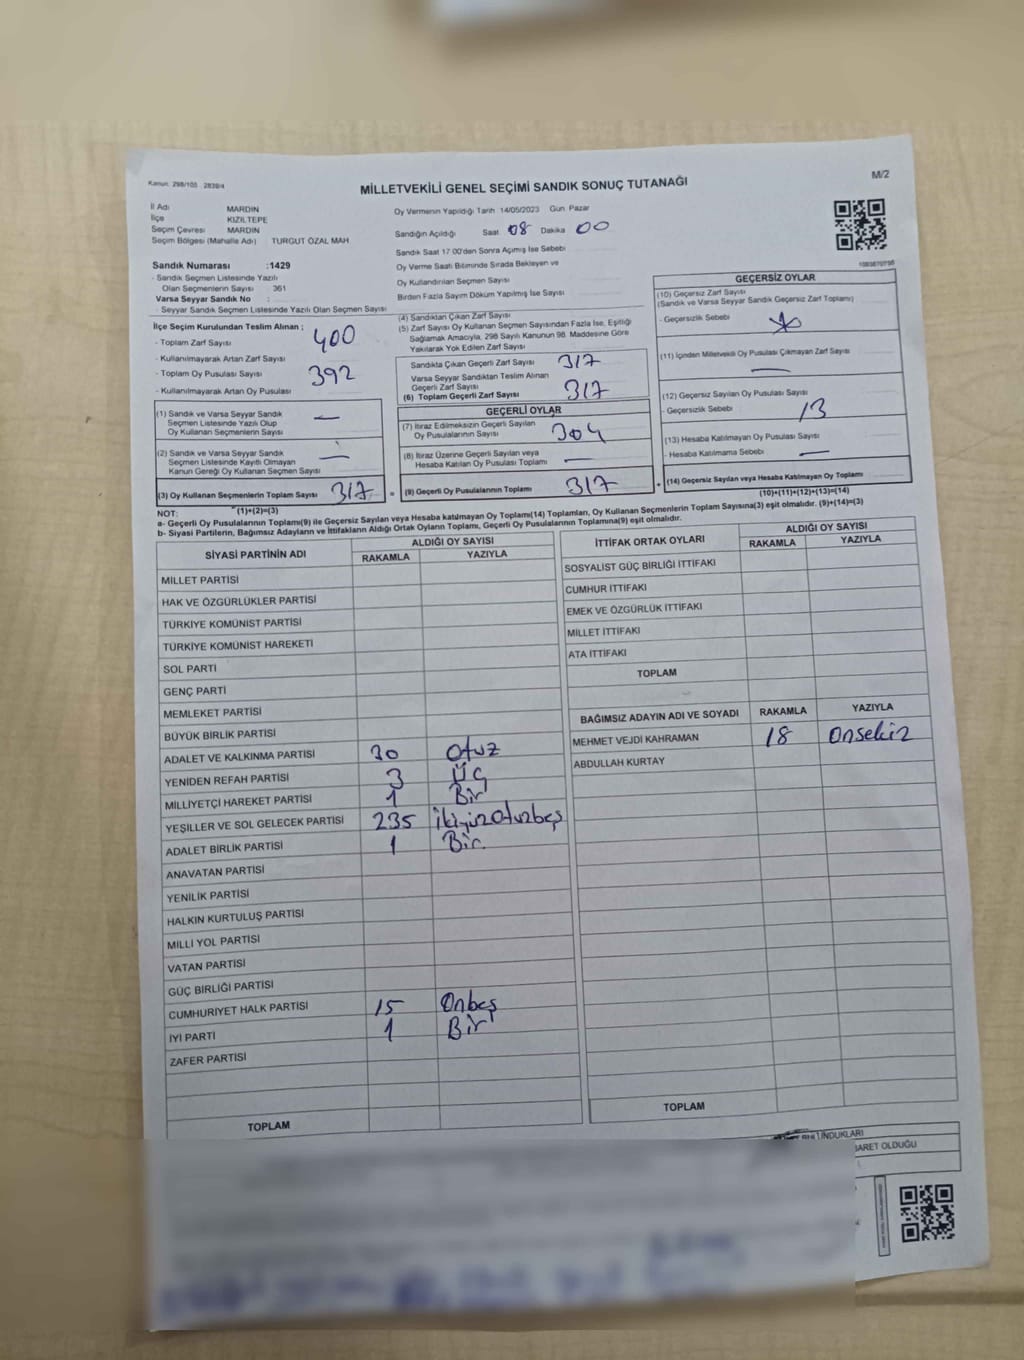 Kanun: 298/105 2839/4
MİLLETVEKİLİ GENEL SEÇİMİ SANDIK SONUÇ TUTANAĞI
M/2
İl Adı MARDİN
İlçe KIZILTEPE
Seçim Çevresi MARDİN
Seçim Bölgesi (Mahalle Adı) TURGUT ÖZAL MAH
Sandık Numarası :1429
- Sandık Seçmen Listesinde Yazılı
Olan Seçmenlerin Sayısı : 361
Varsa Seyyar Sandık No :
- Seyyar Sandık Seçmen Listesinde Yazılı Olan Seçmen Sayısı
Oy Vermenin Yapıldığı Tarih 14/05/2023 Gün Pazar
Sandığın Açıldığı Saat 08 Dakika 00
Sandık Saat 17 00'den Sonra Açımış İse Sebebi
Oy Verme Saati Bitiminde Sırada Bekleyen ve
Oy Kullandırılan Seçmen Sayısı
Birden Fazla Sayım Döküm Yapılmış İse Sayısı
İlçe Seçim Kurulundan Teslim Alınan ;
- Toplam Zarf Sayısı 400
- Kullanılmayarak Artan Zarf Sayısı
- Toplam Oy Pusulası Sayısı 392
- Kullanılmayarak Artan Oy Pusulası
(1) Sandık ve Varsa Seyyar Sandık
Seçmen Listesinde Yazılı Olup
Oy Kullanan Seçmenlerin Sayısı —
(2) Sandık ve Varsa Seyyar Sandık
Seçmen Listesinde Kayıtlı Olmayan
Kanun Gereği Oy Kullanan Seçmen Sayısı —
(3) Oy Kullanan Seçmenlerin Toplam Sayısı 317
(1)+(2)=(3)
(4) Sandıktan Çıkan Zarf Sayısı
(5) Zarf Sayısı Oy Kullanan Seçmen Sayısından Fazla İse, Eşitliği
Sağlamak Amacıyla, 298 Sayılı Kanunun 98. Maddesine Göre
Yakılarak Yok Edilen Zarf Sayısı
Sandıkta Çıkan Geçerli Zarf Sayısı 317
Varsa Seyyar Sandıktan Teslim Alınan
Geçerli Zarf Sayısı
(6) Toplam Geçerli Zarf Sayısı 317
GEÇERLİ OYLAR
(7) İtiraz Edilmeksizin Geçerli Sayılan
Oy Pusulalarının Sayısı 304
(8) İtiraz Üzerine Geçerli Sayılan veya
Hesaba Katılan Oy Pusulası Toplamı —
= (9) Geçerli Oy Pusulalarının Toplamı 317
1083870796
GEÇERSİZ OYLAR
(10) Geçersiz Zarf Sayısı
(Sandık ve Varsa Seyyar Sandık Geçersiz Zarf Toplamı)
- Geçersizlik Sebebi
(11) İçinden Milletvekili Oy Pusulası Çıkmayan Zarf Sayısı
—
(12) Geçersiz Sayılan Oy Pusulası Sayısı
- Geçersizlik Sebebi 13
(13) Hesaba Katılmayan Oy Pusulası Sayısı
- Hesaba Katılmama Sebebi —
+ (14) Geçersiz Sayılan veya Hesaba Katılmayan Oy Toplamı
(10)+(11)+(12)+(13)=(14)
NOT:
a- Geçerli Oy Pusulalarının Toplamı(9) ile Geçersiz Sayılan veya Hesaba katılmayan Oy Toplamı(14) Toplamları, Oy Kullanan Seçmenlerin Toplam Sayısına(3) eşit olmalıdır. (9)+(14)=(3)
b- Siyasi Partilerin, Bağımsız Adayların ve İttifakların Aldığı Ortak Oyların Toplamı, Geçerli Oy Pusulalarının Toplamına(9) eşit olmalıdır.
SİYASİ PARTİNİN ADI ALDIĞI OY SAYISI
RAKAMLA YAZIYLA
MİLLET PARTİSİ
HAK VE ÖZGÜRLÜKLER PARTİSİ
TÜRKİYE KOMÜNİST PARTİSİ
TÜRKİYE KOMÜNİST HAREKETİ
SOL PARTİ
GENÇ PARTİ
MEMLEKET PARTİSİ
BÜYÜK BİRLİK PARTİSİ
ADALET VE KALKINMA PARTİSİ 30 Otuz
YENİDEN REFAH PARTİSİ 3 Üç
MİLLİYETÇİ HAREKET PARTİSİ 1 Bir
YEŞİLLER VE SOL GELECEK PARTİSİ 235 İkiyüzotuzbeş
ADALET BİRLİK PARTİSİ 1 Bir.
ANAVATAN PARTİSİ
YENİLİK PARTİSİ
HALKIN KURTULUŞ PARTİSİ
MİLLİ YOL PARTİSİ
VATAN PARTİSİ
GÜÇ BİRLİĞİ PARTİSİ
CUMHURİYET HALK PARTİSİ 15 Onbeş
İYİ PARTİ 1 Bir
ZAFER PARTİSİ
TOPLAM
İTTİFAK ORTAK OYLARI ALDIĞI OY SAYISI
RAKAMLA YAZIYLA
SOSYALİST GÜÇ BİRLİĞİ İTTİFAKI
CUMHUR İTTİFAKI
EMEK VE ÖZGÜRLÜK İTTİFAKI
MİLLET İTTİFAKI
ATA İTTİFAKI
TOPLAM
BAĞIMSIZ ADAYIN ADI VE SOYADI RAKAMLA YAZIYLA
MEHMET VEJDİ KAHRAMAN 18 Onsekiz
ABDULLAH KURTAY
TOPLAM
BARET OLDUĞU